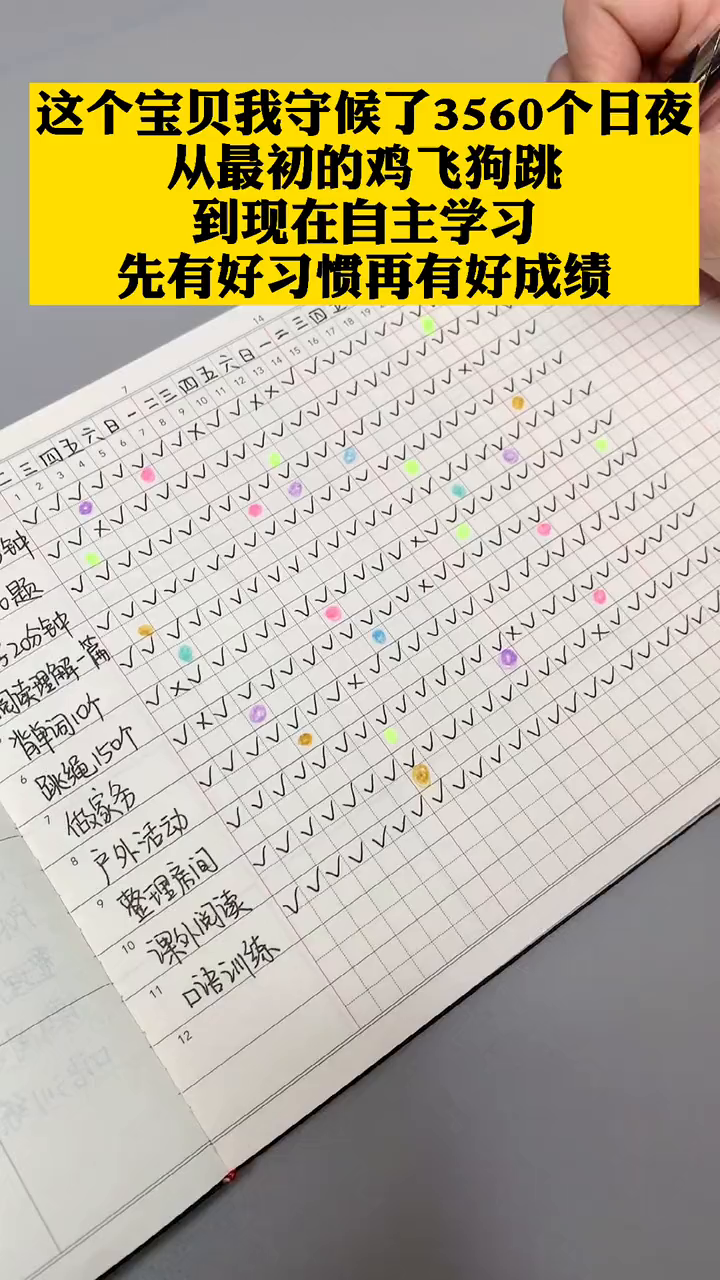 这个宝贝我守候了3560个日夜
从最初的鸡飞狗跳
到现在自主学习
先有好习惯再有好成绩
14
7
二 三 四 五 六 日 一 二 三 四 五 六 日 一 二 三 四
1 2 3 4 5 6 7 8 9 10 11 12 13 14 15 16 17 18 19
分钟
题
20分钟
阅读理解一篇
背单词10个
6 跳绳150个
7 做家务
8 户外活动
9 整理房间
10 课外阅读
11 口语训练
12